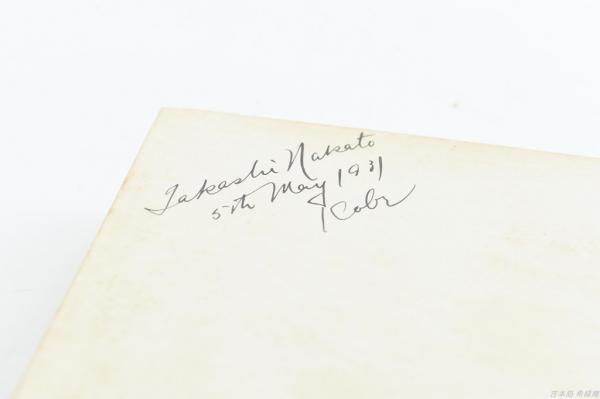 Takashi Nakato
5th May 1931
Kobe
古本処 希縁庵